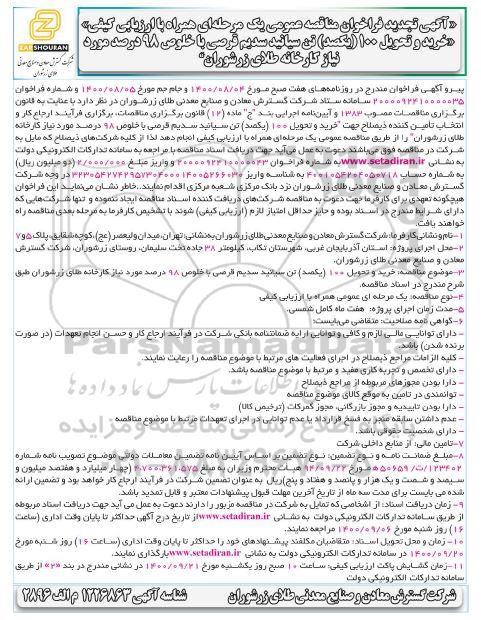 «آگهی تجدید فراخوان مناقصه عمومی یک مرحله‌ای همراه با ارزیابی کیفی»
«خرید و تحویل ۱۰۰ (یکصد) تن سیانید سدیم قرصی با خلوص ۹۸ درصد مورد
نیاز کارخانه طلای زرشوران»
ZARSHOURAN
شرکت گسترش معادن و صنایع معدنی
طلای زرشوران
پیرو آگهی فراخوان مندرج در روزنامه‌های هفت صبح مورخ ۱۴۰۰/۰۸/۰۴ و جام جم مورخ ۱۴۰۰/۰۸/۰۵ و شماره فراخوان
۲۰۰۰۰۹۲۴۱۰۰۰۰۰۳۵ سامانه ستاد شرکت گسترش معادن و صنایع معدنی طلای زرشوران در نظر دارد با عنایت به قانون
برگزاری مناقصات مصوب ۱۳۸۳ و آیین‌نامه اجرایی بند "ج" ماده (۱۲) قانون برگزاری مناقصات، برگزاری فرآیند ارجاع کار و
انتخاب تأمین کننده ذیصلاح جهت "خرید و تحویل ۱۰۰ (یکصد) تن سیانید سدیم قرصی با خلوص ۹۸ درصد مورد نیاز کارخانه
طلای زرشوران" را از طریق مناقصه عمومی یک مرحله‌ای همراه با ارزیابی کیفی انجام دهد لذا از کلیه شرکت‌های ذیصلاح که مایل به
شرکت در مناقصه فوق می‌باشند دعوت به عمل می‌آید جهت دریافت اسناد مناقصه با مراجعه به سامانه تدارکات الکترونیکی دولت
به نشانی www.setadiran.ir به شماره فراخوان ۲۰۰۰۰۹۲۴۱۰۰۰۰۰۴۳ و واریز مبلغ ۲/۰۰۰/۰۰۰ (دو میلیون ریال)
به شماره حساب ۴۰۰۱۰۵۴۲۰۴۰۵۰۷۱۸ به شناسه واریز در وجه شرکت
گسترش معادن و صنایع معدنی طلای زرشوران نزد بانک مرکزی شعبه مرکزی اقدام نمایند. خاطر نشان می‌نماید، این فراخوان
هیچگونه تعهدی برای کارفرما جهت دعوت به مناقصه شرکت‌های دریافت کننده اسناد مناقصه ایجاد ننموده و تنها شرکت‌هایی که
دارای شرایط مندرج در اسناد بوده و حایز حداقل امتیاز لازم (ارزیابی کیفی) شوند با تشخیص کارفرما به مرحله بعدی مناقصه راه
خواهند یافت.
۱-نام و نشانی کارفرما: شرکت گسترش معادن و صنایع معدنی طلای زرشوران به نشانی: تهران، میدان ولیعصر (عج)، کوچه شقایق، پلاک ۵ و ۷
۲-محل اجرای پروژه: استان آذربایجان غربی، شهرستان تکاب، کیلومتر ۳۸ جاده تخت سلیمان، روستای زرشوران، شرکت گسترش
معادن و صنایع معدنی طلای زرشوران.
۳-موضوع مناقصه: خرید و تحویل ۱۰۰ (یکصد) تن سیانید سدیم قرصی با خلوص ۹۸ درصد مورد نیاز کارخانه طلای زرشوران طبق
شرح مندرج در اسناد مناقصه.
۴-نوع مناقصه: یک مرحله ای عمومی همراه با ارزیابی کیفی
۵-مدت زمان اجرای پروژه: هفت ماه کامل شمسی.
۶-گواهی نامه صلاحیت: متقاضی می‌بایست:
- دارای توانایی مالی لازم و کافی و توانایی ارایه ضمانتنامه بانکی شرکت در فرآیند ارجاع کار و حسن انجام تعهدات (در صورت
برنده شدن) باشد.
- کلیه الزامات مراجع ذیصلاح در اجرای فعالیت های مرتبط با موضوع مناقصه را رعایت نمایند.
- دارای تخصص و تجربه کاری مفید و مرتبط با موضوع مناقصه باشد.
- دارا بودن مجوزهای مربوطه از مراجع ذیصلاح
- توانمندی در تامین به موقع کالای موضوع مناقصه
- دارا بودن تاییدیه و مجوز بازرگانی، مجوز گمرکات (ترخیص کالا)
- عدم داشتن سابقه منجر به فسخ قرارداد یا عدم توانایی در اجرای تعهدات مرتبط با موضوع مناقصه
- دارای شخصیت حقوقی باشد.
۷-تامین مالی: از منابع داخلی شرکت
۸-مبلغ ضمانت نامه و نوع تضمین: نوع تضمین بر اساس آیین نامه تضمین معاملات دولتی موضوع تصویب نامه شماره
۱۲۳۴۰۲/ت ۵۰۶۵۹ هـ مورخ ۹۴/۰۹/۲۲ هیات محترم وزیران به مبلغ ۴،۷۰۰،۳۶۱،۵۷۵ (چهار میلیارد و هفتصد میلیون و
سیصد و شصت و یک هزار و پانصد و هفتاد و پنج) ریال به عنوان تضمین شرکت در فرآیند ارجاع کار خواهد بود و تضمین ارائه
شده می بایست برای مدت سه ماه از تاریخ آخرین مهلت قبول پیشنهادات معتبر و قابل تمدید باشد.
۹-زمان دریافت اسناد: از اشخاصی که تمایل به شرکت در مناقصه مزبور را دارند دعوت به عمل می آید جهت دریافت اسناد مربوطه
از طریق سامانه تدارکات الکترونیکی دولت به نشانی www.setadiran.ir از تاریخ درج آگهی حداکثر تا پایان وقت اداری (ساعت
۱۶) روز شنبه مورخ ۱۴۰۰/۰۹/۰۶ مراجعه نمایند.
۱۰- زمان و محل تحویل اسناد: متقاضیان مکلفند پیشنهادهای خود را حداکثر تا پایان وقت اداری (ساعت ۱۶) روز شنبه مورخ
۱۴۰۰/۰۹/۲۰ در سامانه تدارکات الکترونیکی دولت به نشانی www.setadiran.ir بارگذاری نمایند.
۱۱-زمان گشایش پاکت ارزیابی کیفی: ساعت ۱۰ صبح روز یکشنبه مورخ ۱۴۰۰/۰۹/۲۱ در نشانی مندرج در بند «۲» از طریق
سامانه تدارکات الکترونیکی دولت
شرکت گسترش معادن و صنایع معدنی طلای زرشوران
شناسه آگهی ۱۲۲۶۸۶۳ م الف ۲۸۹۶